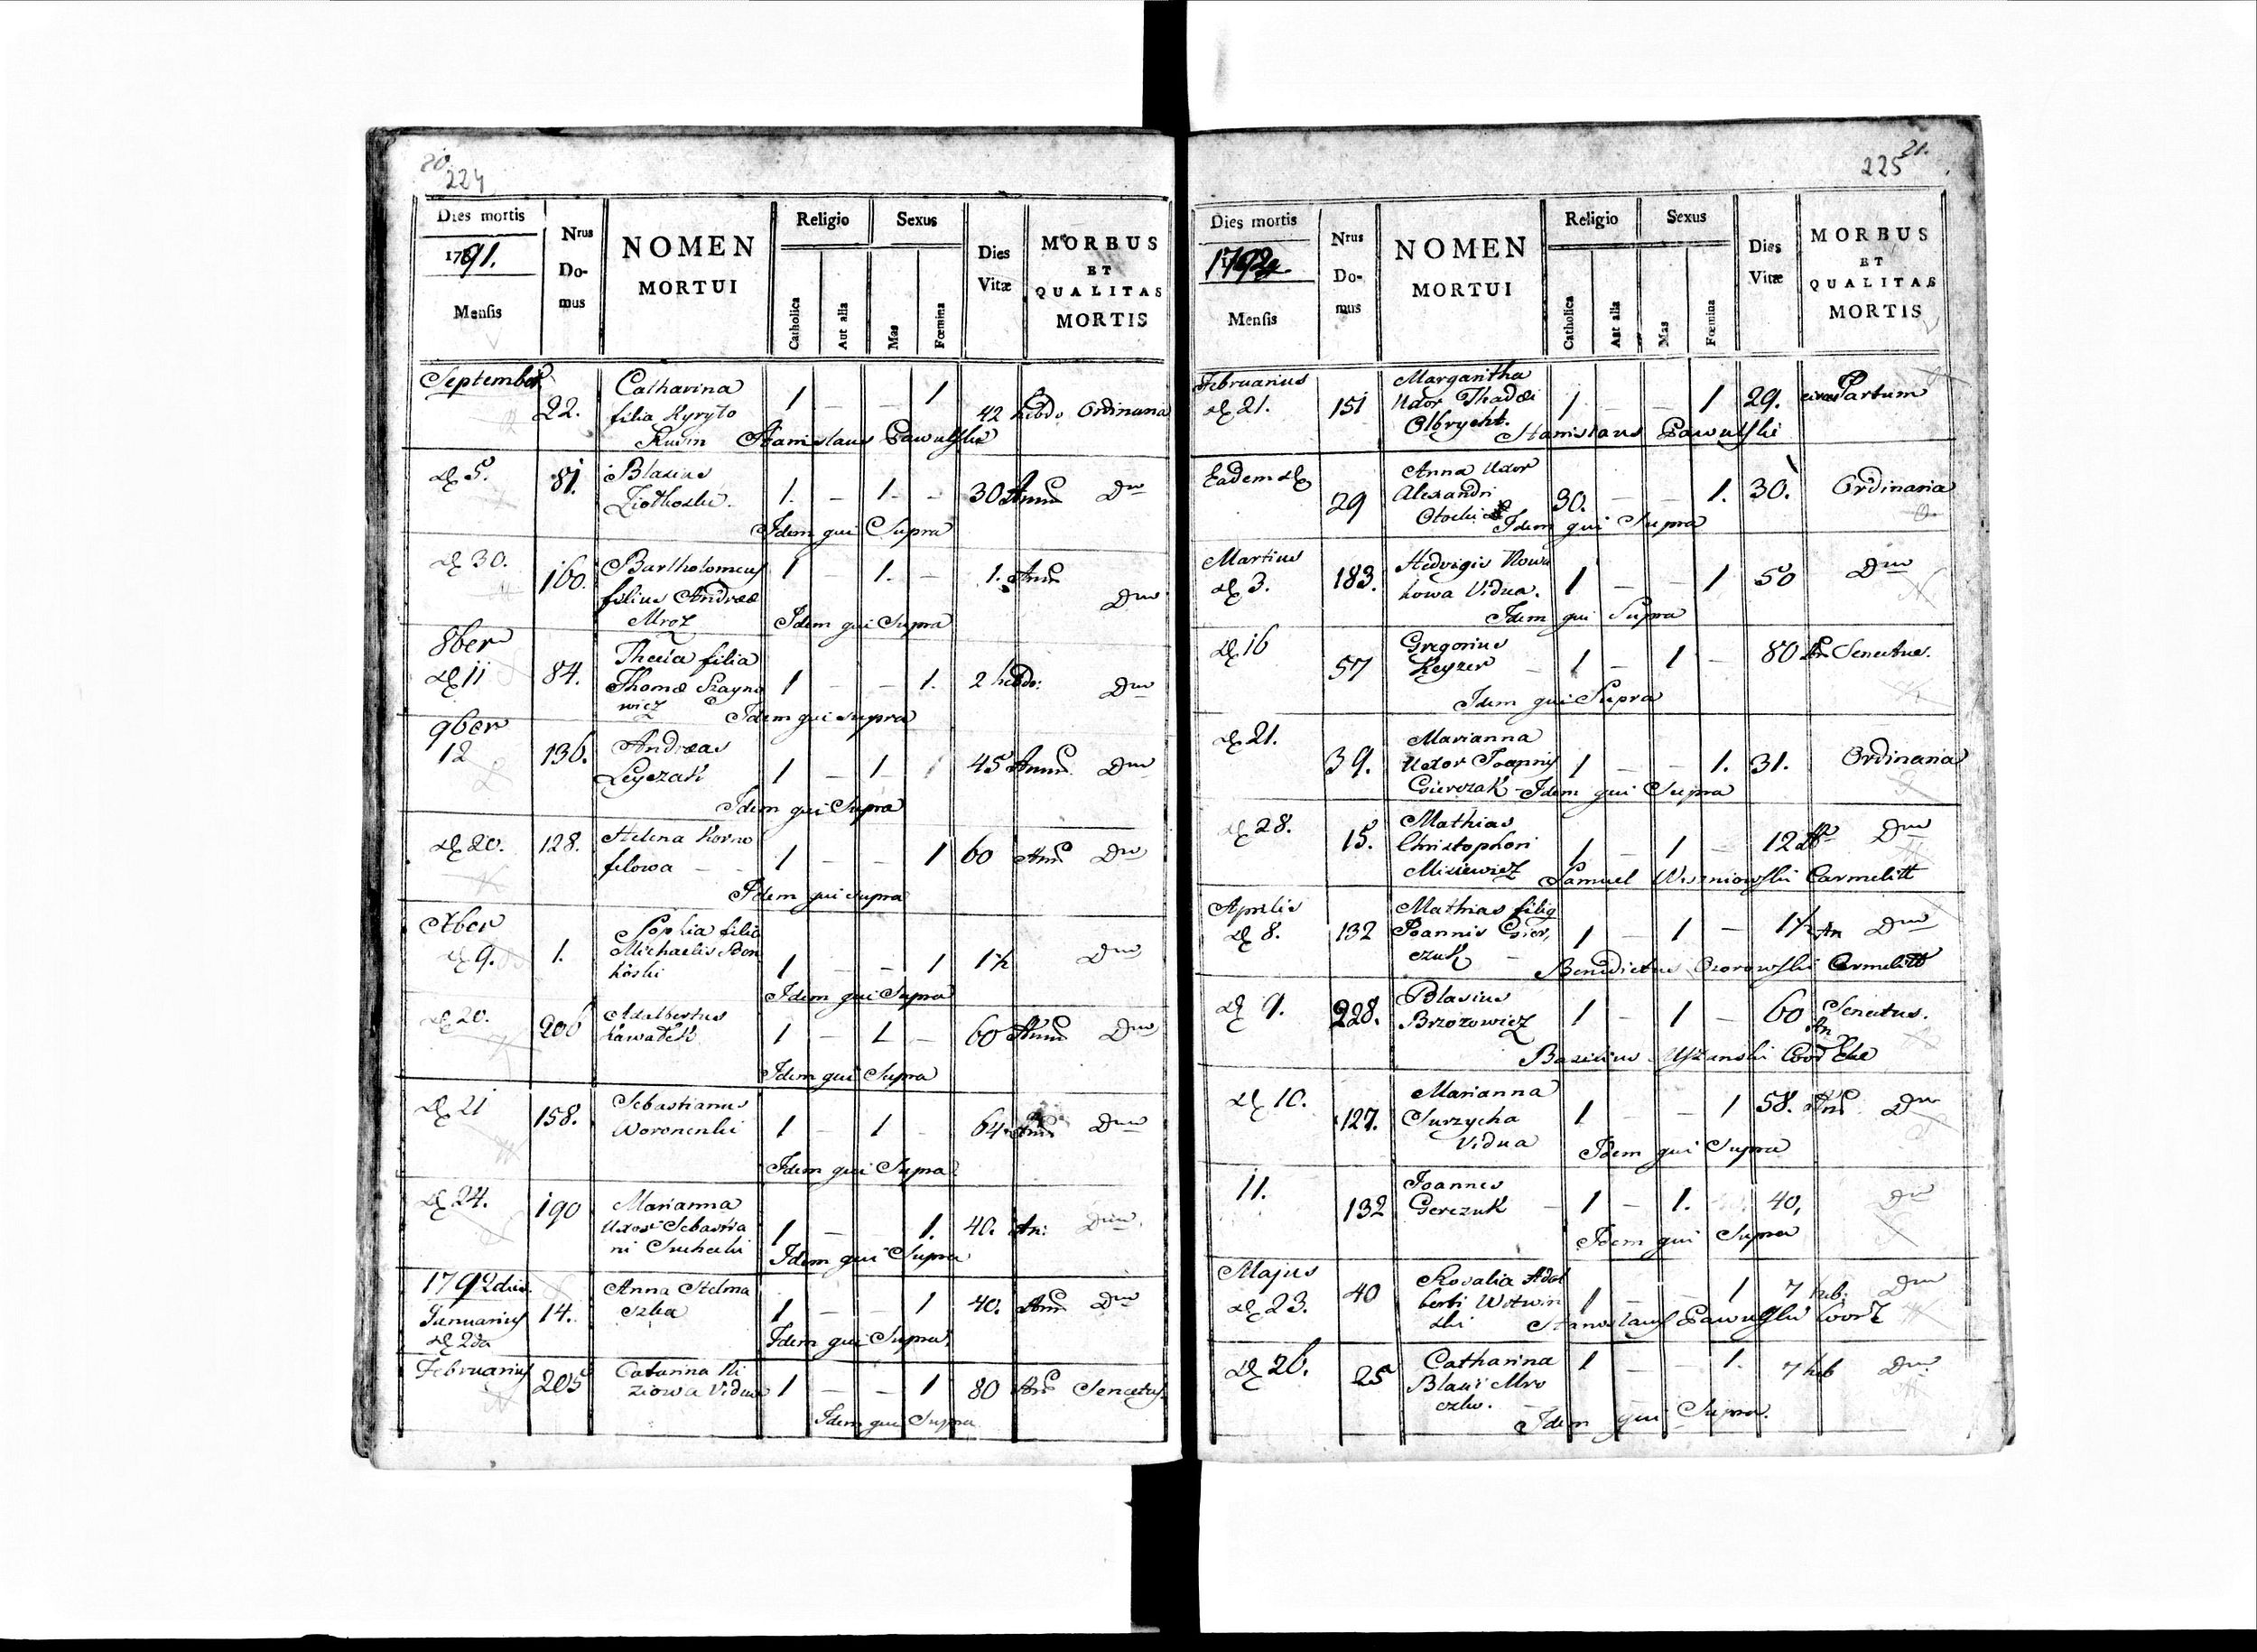 224
Dies mortis
1791.
Mensis
Nrus
Do-
mus
NOMEN
MORTUI
Religio
Catholica
Aut alia
Sexus
Mas
Fœmina
Dies
Vitæ
MORBUS
ET
QUALITAS
MORTIS
September 22. Catharina 1 — — 1 42 hebdo. Ordinaria
filia Kyryło
Stanislaus Pawulski
5. 81. Blasius 1. — 1. — 30 Anno Dto
Idem qui Supra
30. 160. Bartholomeus 1 — 1. — 1. Ann
filius Andreæ Dto
Mroz Idem qui Supra
8ber
11 84. filia 1 — — 1. 2 hebdo: Dto
Thomæ Szayno
wicz Idem qui supra
9ber
12 136. Andreas 1 — 1 45 Anno Dto
Leyczak
Idem qui Supra
20. 128. Helena Korno 1 — — 1 60 Ann Dto
filowa
Idem qui supra
Xber
9. 1. Sophia filia 1 — — 1 1½ Dto
Michaelis Bon
koski
Idem qui Supra
20. 206 Adalbertus 1 — 1 — 60 Anno Dto
Kawałek
Idem qui Supra
21 158. Sebastianus 1 — 1 — 64. Ann Dto
Woronenki
Idem qui Supra
24. 190 Marianna 1 — — 1. 40. An: Dto
Uxor Sebastia
ni Suchecki Idem qui Supra
1792
Januarius 14. Anna Stelma 1 — — 1 40. Ann Dto
2da szka
Idem qui Supra
Februarius 205 Catarina Ki 1 — — 1 80 Ann Senectus
ziowa Vidua
Idem qui Supra
21.
225
Dies mortis
1792
Mensis
Nrus
Do-
mus
NOMEN
MORTUI
Religio
Catholica
Aut alia
Sexus
Mas
Fœmina
Dies
Vitæ
MORBUS
ET
QUALITAS
MORTIS
Februarius Margaritha
21. 151 Uxor Thadæi 1 — — 1 29. circa Partum
Olbrycht. Stanislaus Pawulski
Eadem Anna Uxor
29 Alexandri 30. — — 1. 30. Ordinaria
Otocki Idem qui Supra
Martius
3. 183. Hedvigis Nowa 1 — — 1 50 Dto
kowa Vidua.
Idem qui Supra
16 57 Gregorius 1 — 1 — 80 An Senectus.
Keyzer
Idem qui Supra
21. 39. Marianna 1 — — 1. 31. Ordinaria
Uxor Joannis
Gierczak Idem qui Supra
28. 15. Mathias 1 — 1 — 12 Dto
Christophori
Misiewicz Samuel Wiszniowski Carmelitt
Aprilis
8. 132 Mathias filig 1 — 1 — 1½ An Dto
Joannis Gier,
czuk Benedictus Ozorowski Carmelitt
9. 228. Blasius 1 — 1 — 60 An Senectus.
Brzozowicz
Basilius
10. 127. Marianna 1 — — 1 58. Ann Dto
Surzycha
Vidua Idem qui Supra
11. 132 Joannes 1 — 1. 40, Dto
Gerczuk
Idem qui Supra
Majus
23. 40 Rosalia Adal 1 — — 1 7 heb: Dto
berti Wotwin
ski Stanislaus Pawulski Coor
26. 25 Catharina 1 — — 1. 7 heb Dto
Blasii Mro
czko.
Idem qui Supra.